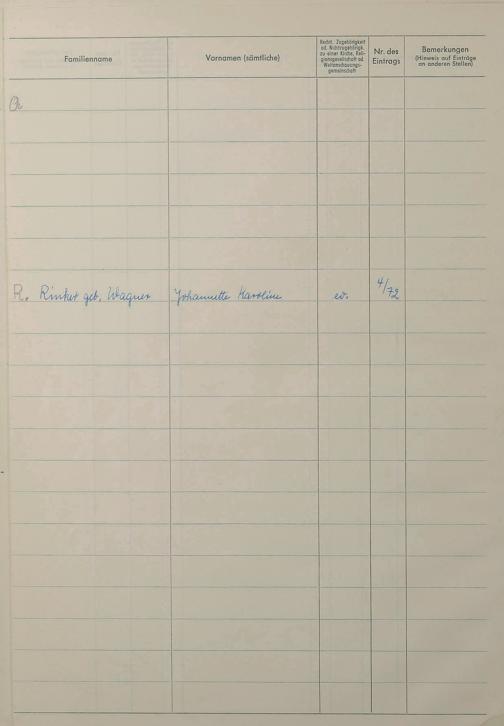 Familienname
Vornamen (sämtliche)
Rechtl. Zugehörigkeit
od. Nichtzugehörigk.
zu einer Kirche, Reli-
gionsgesellschaft od.
Weltanschauungs-
gemeinschaft
Nr. des
Eintrags
Bemerkungen
(Hinweis auf Einträge
an anderen Stellen)
Q
R. Rinker geb. Wagner Johannette Karoline ev. 4/72